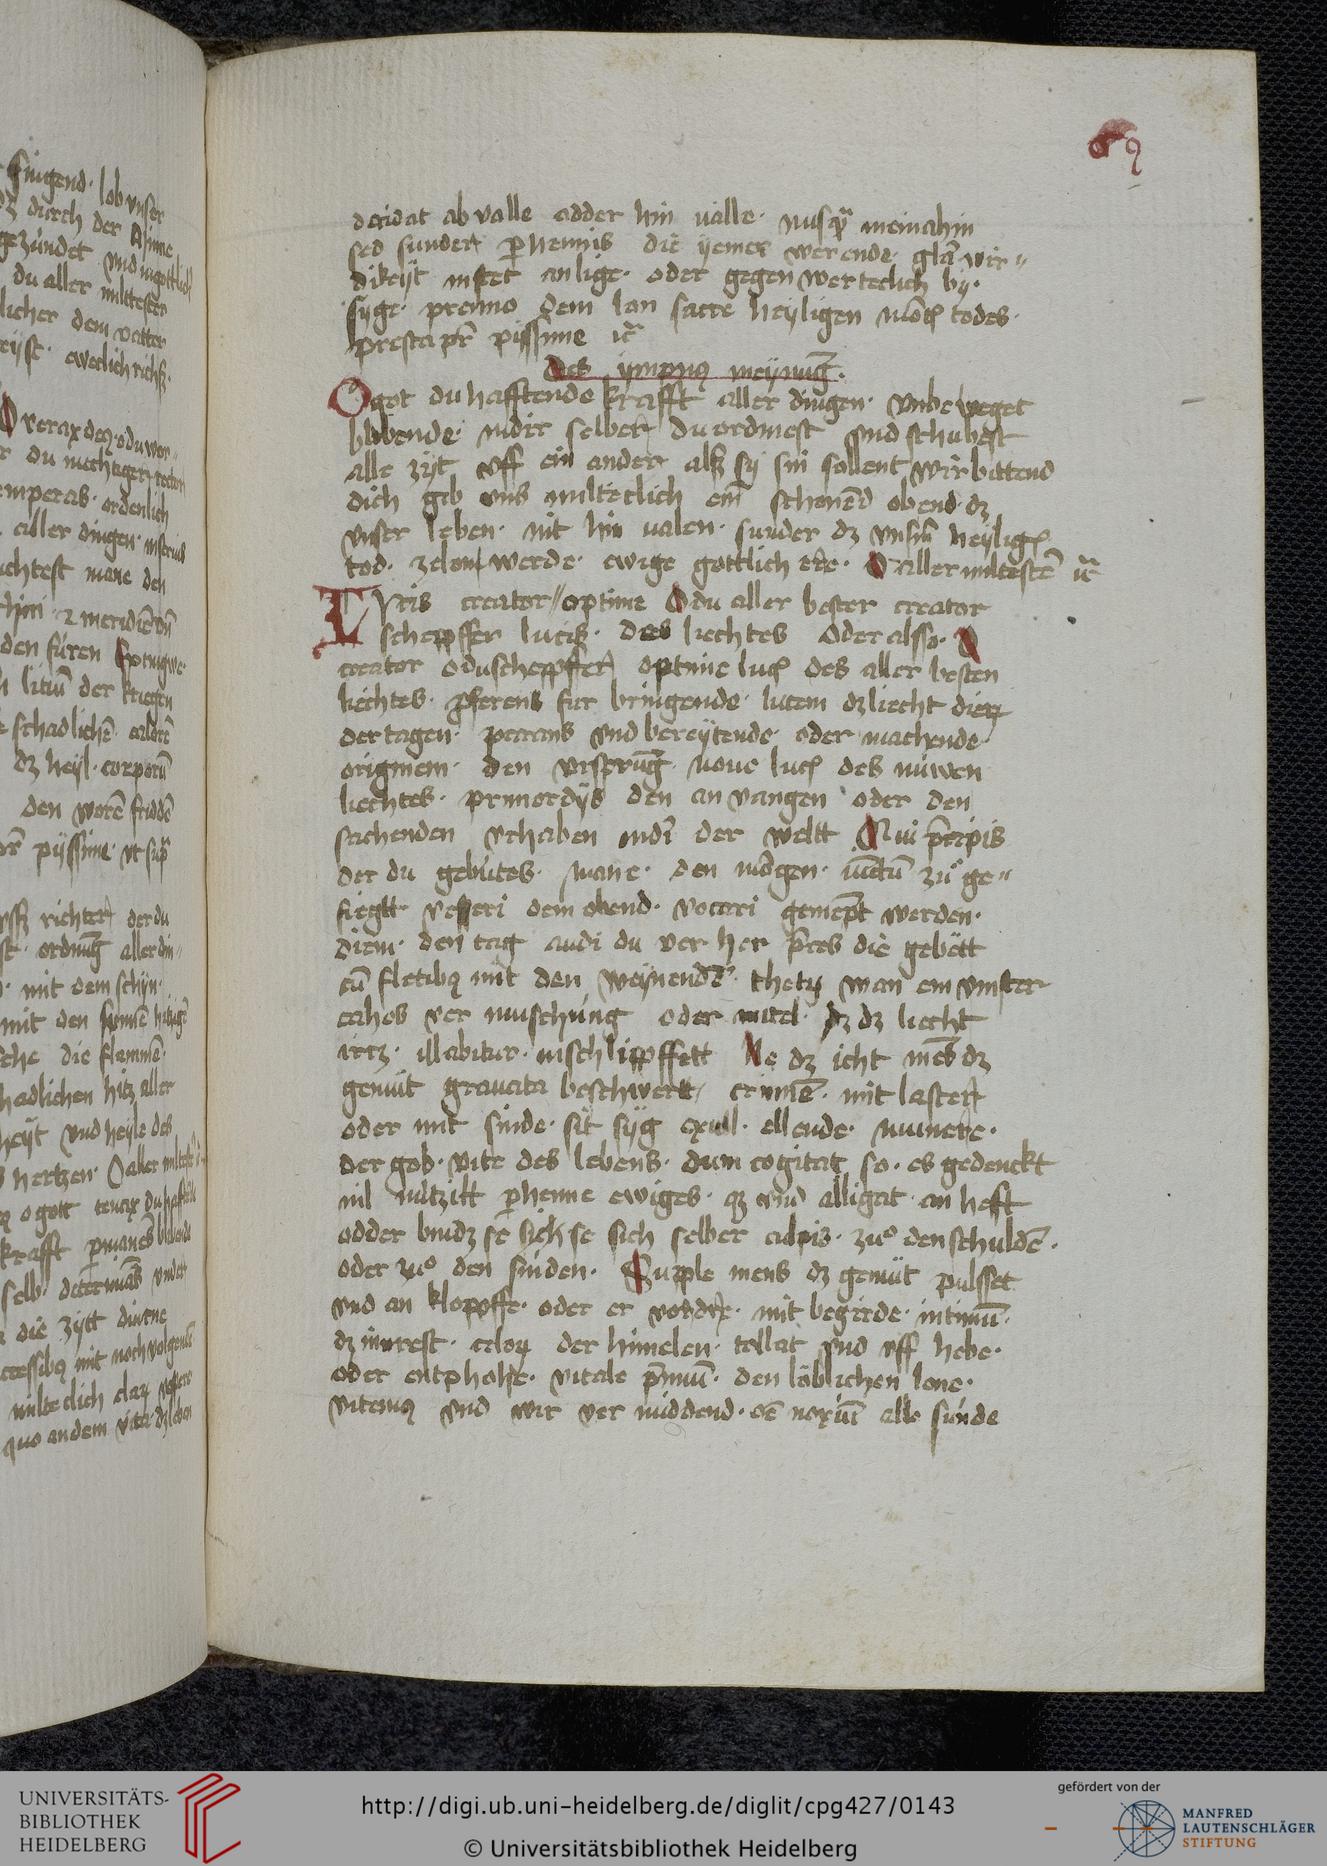 69
decidat ab valle odder hin valle. nusq̄ meinahin
sed sunder p̄hennis die yemer werende glā wir〃
dikeyt instet anlige. oder gegen werteclich by.
syge. premio dem lon sacre heyligen mōtꝭ todes.
presta pr̄ pissime ꝛc
des ympnꝯ meynūg.
O got du hafftende krafft aller dingen. vnbeweget
blibende. indir selber du ordinest vnd schubest
alle zyt vff ein ander alß sy sin sollent wir bittend
dich gib vns milteclich ein schonēd obend. dz
vnser leben. nit hin valen. sunder dz vnserm heyligē
tod. zelon werde. ewige gottlich ere. O aller miltestē ꝛc
Lvcis creator〃optime O du aller bester creator
schepffer lucis. des liechtes Oder alsso. O
creator o du schepffer optime lucꝭ des aller besten
liechtes. pferens fur bringende. lucem dz liecht dierꝝ
der tagen. parans vnd bereytende oder machende
originem. den vrsprūg. noue lucꝭ des nuwen
liechtes. primordÿs den an vangen oder den
sachenden vrhaben mdī der weltt Qui p̄cipis
der du gebutes. mane. den mōgen. iūctū zuͦ ge〃
fiegtt vesperi dem obend. vocari genempt werden.
diem. den tag audi du ver her p̄ces die gebëtt
cū fletibꝯ mit den weynendē. thetꝝ wan ein vinster
cahos ver muschung oder mitel. dz dz liecht
irtz. illabitur. inschlipffett Ne dz icht mēs dz
gemut grauata beschwert, crimīe. mit laster
oder mit sinde. sit syg exull. ellende. munere.
der gob. vite des lebens. dum cogitat so. es gedenckt
nil nutzitt p̄henne ewiges. qz vnd alligat an heft
odder bindz se sich se sich selber culpis. zuͦ den schuldē.
oder zuͦ den sinden. Supple mens dz gemut pulsset
vnd an klopffe. oder er vordre. mit begirde. intimū.
dz inrest. celoꝝ der himelen. tollat vnd vff hebe.
oder entphohe. vitale p̄miū. den loblichen lone.
vitemꝯ vnd wir ver middend. oē noxiū alle sunde
singend. lob vnser
dz durch der
gezundet vnd
du aller miltester
licher dem vatter
eyst. eweclich richß.
O verax deꝯ. o du wor〃
temperas. ordenlich
aller dingen.
uchtest mane den
den furen
litiū der kriegen
schadlichē
dz heyl. corporū
den worē fridē
pyssime. vt supᷓ
richter der du
ordnūg aller din〃
mit dem schyn.
mit den
sche die flammē.
hadlichen hitz aller
heyt vnd heyle des
hertzen. O aller
o gott tenax du
krafft
selb.
die zytt
mit nachvolgendē
milteclich
UNIVERSITÄTS-
BIBLIOTHEK
HEIDELBERG
http://digi.ub.uni-heidelberg.de/diglit/cpg427/0143
© Universitätsbibliothek Heidelberg
gefördert von der
MANFRED
LAUTENSCHLÄGER
STIFTUNG